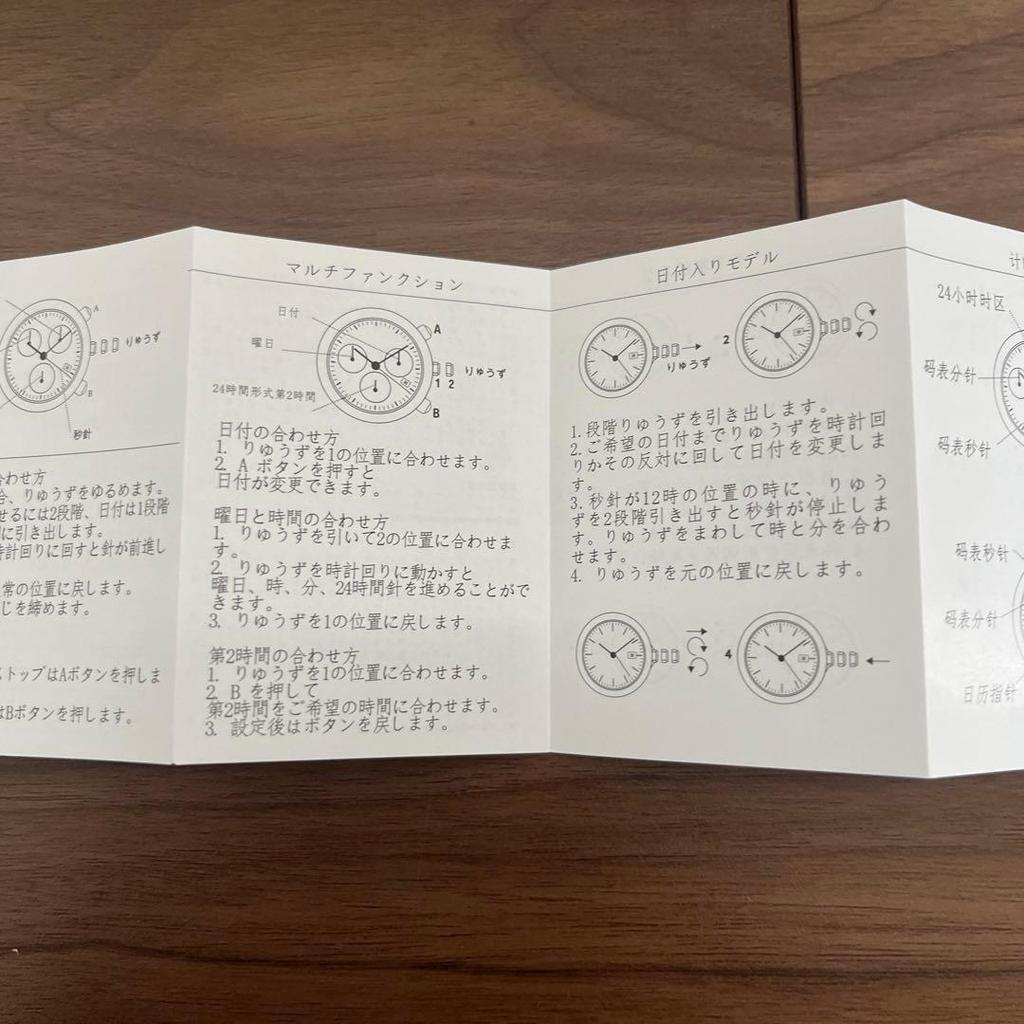 A
りゅうず
B
秒針
合わせ方
合、りゅうずをゆるめます。
せるには2段階、日付は1段階
に引き出します。
時計回りに回すと針が前進し
常の位置に戻します。
じを締めます。
ストップはAボタンを押しま
はBボタンを押します。
マルチファンクション
日付
曜日
24時間形式第2時間
A
りゅうず
1 2
B
日付の合わせ方
1. りゅうずを1の位置に合わせます。
2. A ボタンを押すと
日付が変更できます。
曜日と時間の合わせ方
1. りゅうずを引いて2の位置に合わせま
す。
2. りゅうずを時計回りに動かすと
曜日、時、分、24時間針を進めることがで
きます。
3. りゅうずを1の位置に戻します。
第2時間の合わせ方
1. りゅうずを1の位置に合わせます。
2. B を押して
第2時間をご希望の時間に合わせます。
3. 設定後はボタンを戻します。
日付入りモデル
りゅうず
2
1.段階りゅうずを引き出します。
2.ご希望の日付までりゅうずを時計回
りかその反対に回して日付を変更しま
す。
3.秒針が12時の位置の時に、りゅう
ずを2段階引き出すと秒針が停止しま
す。りゅうずをまわして時と分を合わ
せます。
4. りゅうずを元の位置に戻します。
4
计
24小时时区
码表分针
码表秒针
码表秒针
码表分针
日历指针